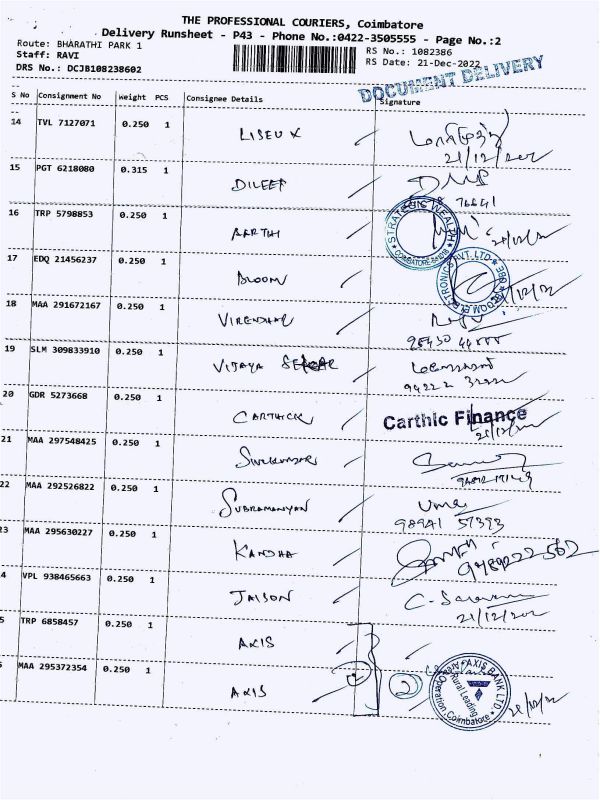 THE PROFESSIONAL COURIERS, Coimbatore
Delivery Runsheet - P43 - Phone No.:0422-3505555 - Page No.:2
Route: BHARATHI PARK 1
RS No.: 1082386
Staff: RAVI
RS Date: 21-Dec-2022
DRS No.: DCJB108238602
DOCUMENT DELIVERY
S No Consignment No Weight PCS Consignee Details Signature
14 TVL 7127071 0.250 1 LISEUX
21/12/2022
15 PGT 6218080 0.315 1 DILEEP
76641
16 TRP 5798853 0.250 1 AARTHI
STRATEGIC WEALTH
COIMBATORE
17 EDQ 21456237 0.250 1 BLOOM
18 MAA 291672167 0.250 1 VIRENDHAR
19 SLM 309833910 0.250 1 VIJAYA SEKAR
20 GDR 5273668 0.250 1 CARTHICK Carthic Finance
21 MAA 297548425 0.250 1
22 MAA 292526822 0.250 1 SUBRAMANYAN Uma
98941 57393
23 MAA 295630227 0.250 1 KANDHA
9789222562
24 VPL 938465663 0.250 1 JAISON
21/12/202
25 TRP 6858457 0.250 1 AXIS
26 MAA 295372354 0.250 1 AXIS 2
AXIS BANK LTD.
Rural Lending
Coimbatore